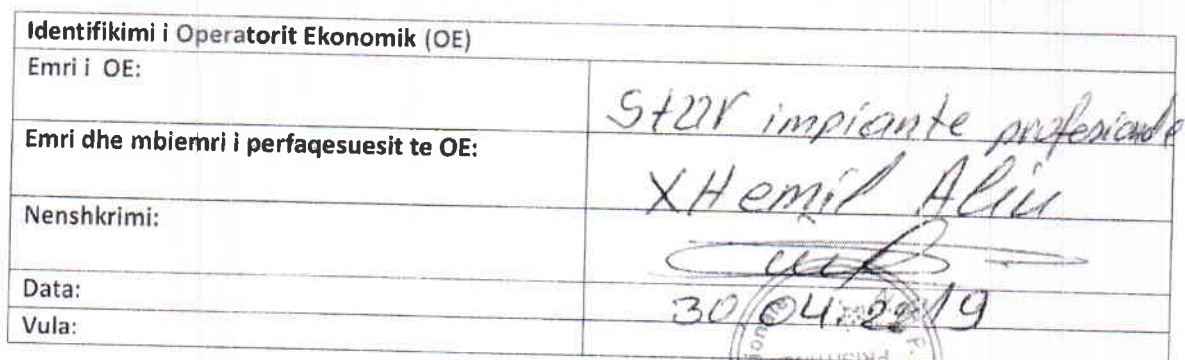 Identifikimi i Operatorit Ekonomik (OE)
Emri i OE:
Star impiante profesionale
Emri dhe mbiemri i perfaqesuesit te OE:
XHemil Aliu
Nenshkrimi:
Data:
30 04.2019
Vula: